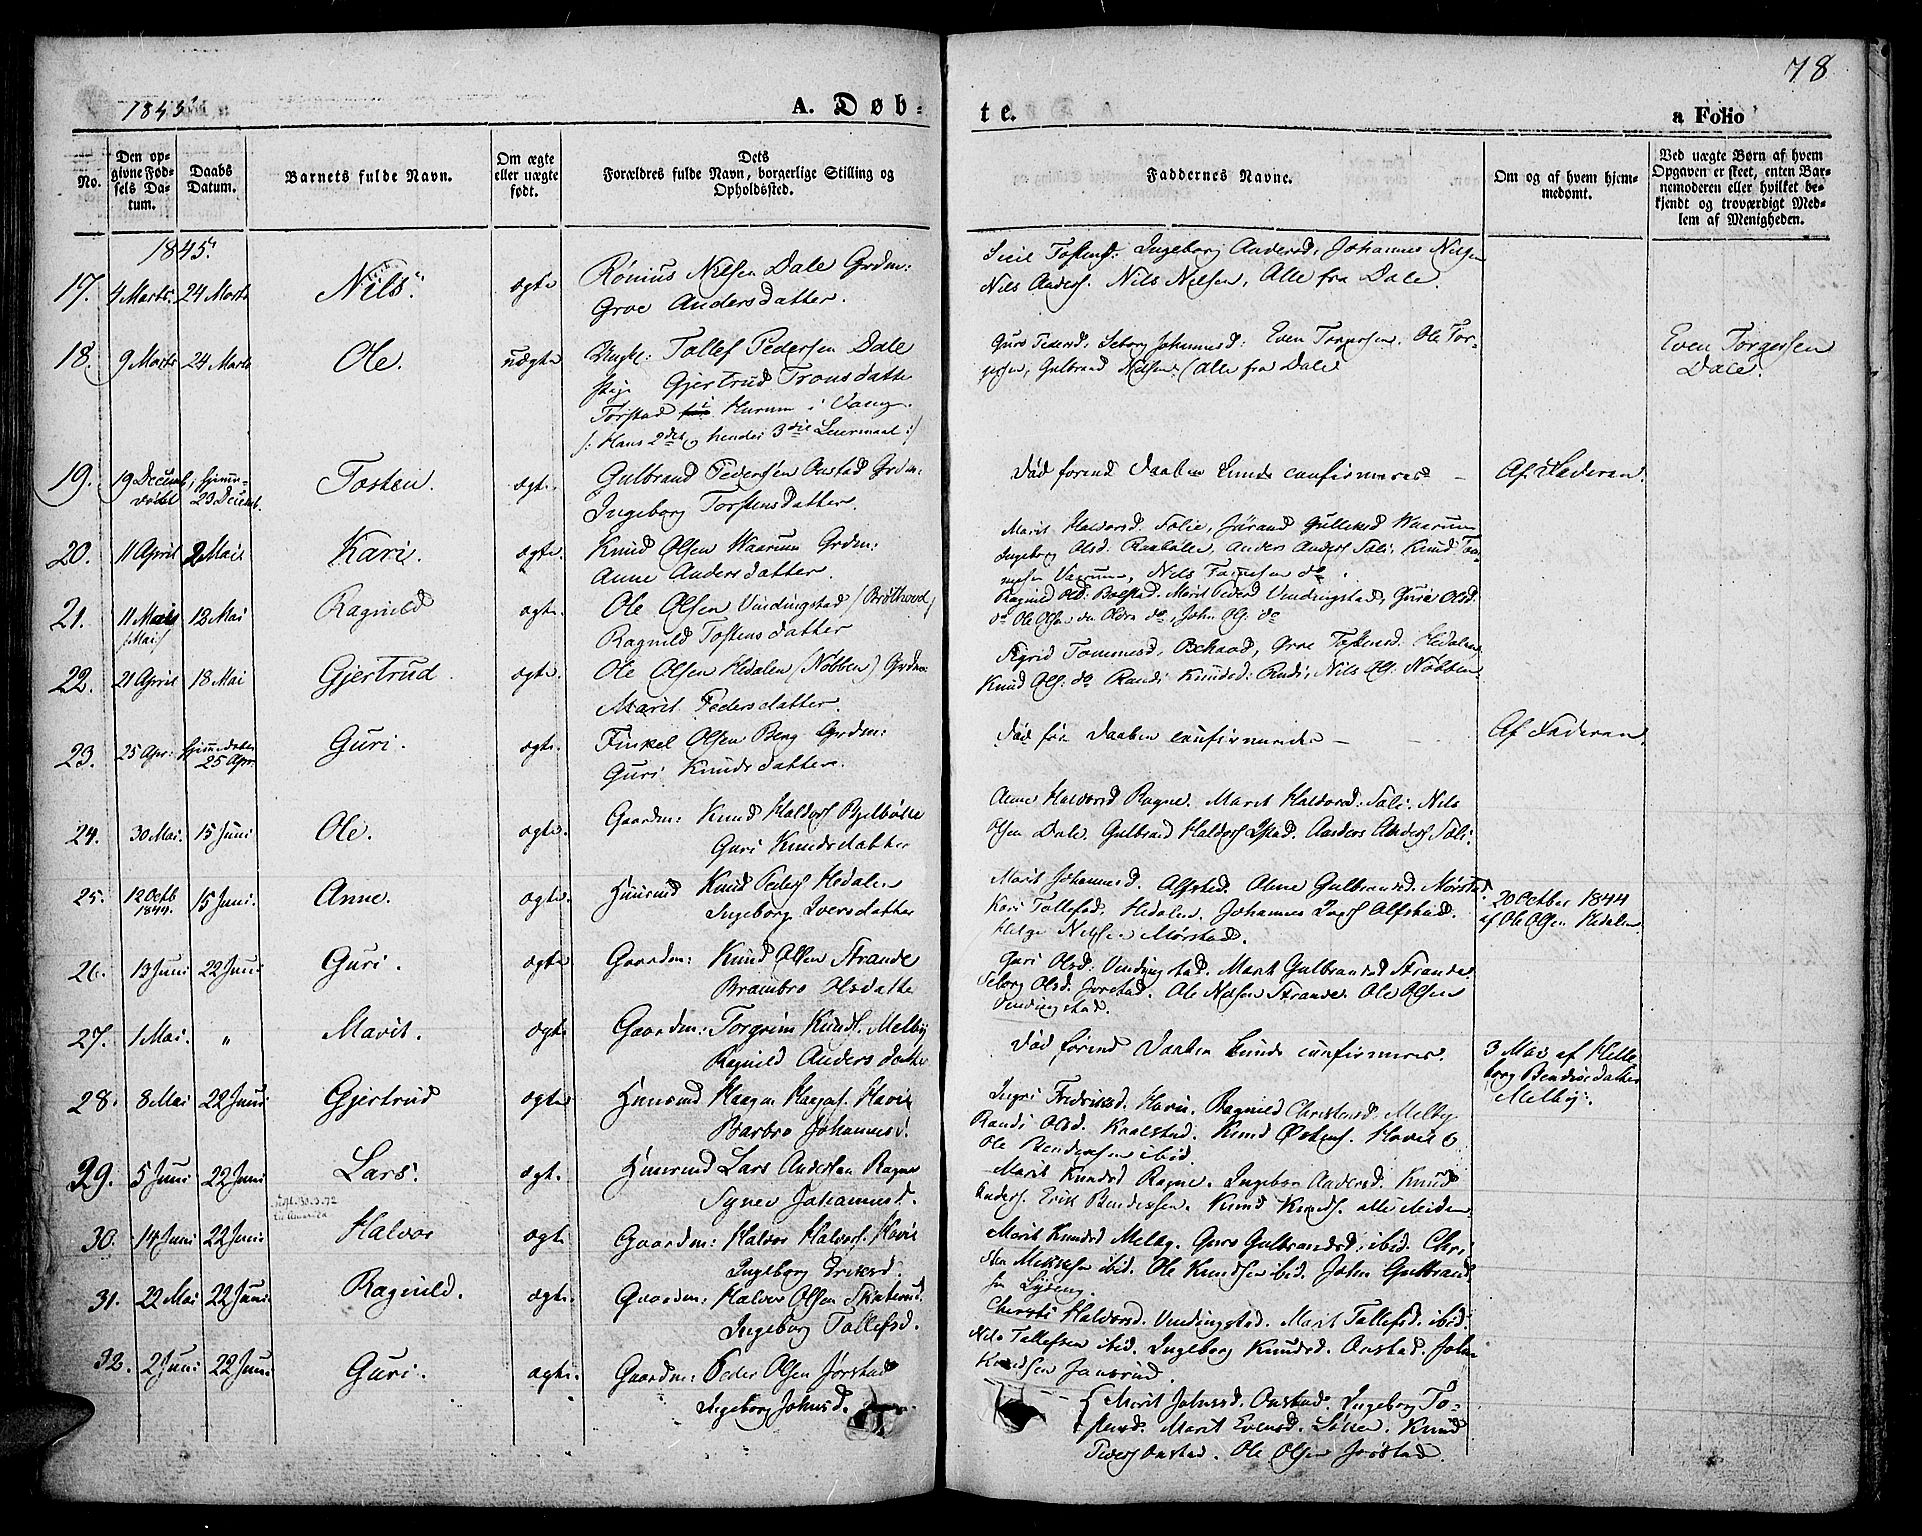 78
1845.
A. Døb-
te.
a Folio
No.
Den op-
givne Fød-
sels Da-
tum.
Daabs
Datum.
Barnets fulde Navn.
Om ægte
eller uægte
født.
Dets
Forældres fulde Navn, borgerlige Stilling og
Opholdssted.
Faddernes Navne.
Om og af hvem hjem-
medømt.
Ved uægte Børn af hvem
Opgaven er skeet, enten Bar-
nemoderen eller hvilket be-
kjendt og troværdigt Med-
lem af Menigheden.
1845.
17. 4 Marts. 24 Marts Nils. ægte Nilsen Dale Grdm:
Groe Andersdatter.
Ingeborg Andersd. Johannes Nilsen
Nils Anders. Nils Nilsen, Alle fra Dale.
18. 9 Marts 24 Marts Ole. uægte Ungk: Tollef Pedersen Dale
Pige Gjertrud Tronsdatte
Hurum i Vang.
/: Hans 2det, hendes 3die Leiermaal :/
Guro Pedersd. Johannesd: Even Torgersen. Ole Tor-
gersen, Gulbrand Nilsen. (Alle fra Dale
Even Torgersen
Dale.
19. 19 Decemb. Hjemme-
døbt 23 Decemb. Tosten. ægte. Gulbrand Pedersen Onstad Grdm:
Ingeborg Torstensdatter.
Død førend Daaben kunde confirmeres -
Af Faderen.
20. 11 April 2 Mai Kari. ægte. Knud Olsen Waarum Grdm:
Anne Andersdatter.
Marit Haldorsd. Gulleksd Waarum
Ingeborg Olsd. Anders Anders Knud
Nils
21. 11
/Mai/ 12 Mai Ragnild ægte. Ole Olsen Vindingstad
Ragnild Tostensdatter
Ragnild Olsd: Bolstad. Marit Pedersd Vindingstad, Guri Olsd.
do Ole Olsen John Ols: do
22. 21 April 18 Mai Gjertrud. ægte. Ole Olsen Hedalen (Nøbben) Grdm:
Marit Pedersdatter.
Sigrid Tommesd, Groe Tostensd. Hedalen
Knud Ols: do Randi Knudsd: Nils Ols: Nøbben
23. 25 Apr: Hjemmedøbt
25 Apr. Guri. ægte. Finkel Olsen Berg Grdm:
Guri Knudsdatter.
Død før Daaben confirmerdes -
Af Faderen.
24. 30 Mai. 15 Juni Ole. ægte. Gaardm: Knud Haldors Bjelbølle
Guri Knudsdatter
Anne Haldorsd Ragne. Marit Haldorsd. Nils
Olsen Dale. Gulbrand Haldors Anders Anders
25. 12 Octb
1844. 15 Juni. Anne. ægte. Huusmd Knud Peders Hedalen
Ingeborg Iversdatter
Marit Johannesd. Alfstad. Anne Gulbransd. Mørstad.
Kari Tollefsd. Hedalen. Johannes Alfstad.
Helge Nilsen Mørstad.
20 October 1844
af Ole Olsen Hedalen
26. 13 Juni 22 Juni Guri. ægte Gaardm: Knud Olsen Strande
Olsdatte
Guri Olsd. Vindingstad. Marit Gulbransd Strande
Olsd. Jørstad. Ole Nilsen Strande. Ole Olsen
Vindingstad.
27. 1 Mai. " Marit. ægte Gaardm: Torgrim Knuds. Melby
Ragnild Andersdatte
Død førend Daaben kunde confirmeres.
3 Mai af Helle
borg Bendixsdatter
Melby.
28. 8 Mai 22 Juni Gjertrud ægte Huusmd Haagen Haagens. Havik
Barbro Johannesd.
Ingri Fredriksd. Ragnild Christensd. Melby
Randi Olsd. Kraalstad. Knud Østens. Havik
Ole Bendixsen ibid.
29. 5 Juni 22 Juni Lars. ægt. Huusmd Lars Andersen Ragne
Johannesd.
Marit Knudsd Ragne. Ingebor Andersd. Knud
Anders. Erik Bendixsen. Knud Knuds. alle ibidem
30. 14 Juni 22 Juni Halvor ægt. Gaardm: Halvor Halvors. Havik
Ingeborg Eriksd.
Marit Knudsd Melby. Guro Gulbrandsd. ibid. Chri
sten ibid. Ole Knudsen ibid. John Gulbrand
31. 22 Mai 22 Juni Ragnild. ægte. Gaardm: Halvor Olsen Skaterud.
Ingeborg Tollefsd.
Haldorsd. Vindingstad. Marit Tollefsd. ibid.
Nils Tollefsen ibid. Ingeborg Knudsd. Onstad. John
Knudsen
32. 2 Juni 22 Juni Guri. ægte. Gaardm: Peder Olsen Jørstad
Ingeborg Johnsd.
Marit Johnsd. Onstad. Ingeborg To-
stensd. Marit Evensd. Løken. Knud
Peders Onstad. Ole Olsen Jørstad.